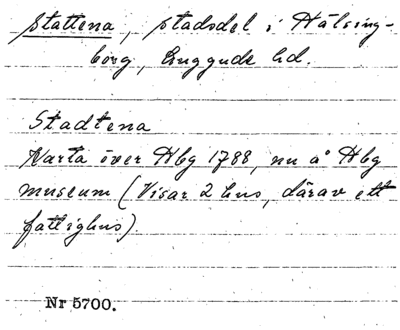 Stattena, stadsdel i Hälsing-
borg, Luggude hd.
Stadtena
Karta över Hbg 1788, nu å Hbg
museum (Visar 2 hus, därav ett
fattighus).
Nr 5700.